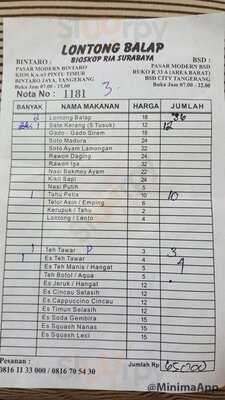 LONTONG BALAP
BIOSKOP RIA SURABAYA
BINTARO : BSD :
PASAR MODERN BINTARO PASAR MODERN BSD
KIOS KA-03 PINTU TIMUR RUKO R 33 A (AREA BARAT)
BINTARO JAYA, TANGERANG BSD CITY TANGERANG
Buka Jam 07.00 - 15.00 Buka Jam 07.00 - 22.00
Nota No : 1181 3
BANYAK NAMA MAKANAN HARGA JUMLAH
2 Lontong Balap 18 36
1 Sate Kerang (5 Tusuk) 12 12
Gado - Gado Sirem 18
Soto Madura 24
Soto Ayam Lamongan 22
Rawon Daging 24
Iga 32
Nasi Bakmoy Ayam 22
Kikil Sapi 24
Nasi Putih 5
1 Tahu Petis 10 10
Telor Asin / Emping 6
Kerupuk / Tahu 2
Lontong / Lento 4
1 Teh Tawar P 3 3
1 Es Teh Tawar 4 4
Es Teh Manis / Hangat 5
Teh Botol / Aqua 5
Es Jeruk / Hangat 12
Es Cincau Selasih 12
Es Cappuccino Cincau 12
Es Timun Selasih 12
Es Soda Gembira 15
Es Squash Nanas 15
Es Squash Leci 15
Pesanan : Jumlah Rp 65.000
0816 11 33 000 / 0816 70 54 30
@MinimaApp